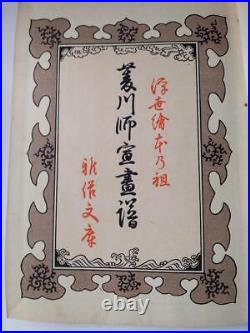 浮世繪本乃祖
菱川師宣畫譜
雅俗文庫